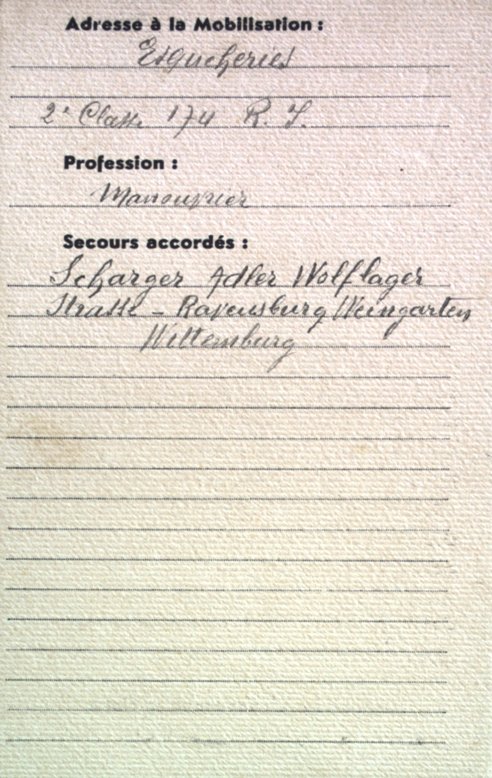 Adresse à la Mobilisation :
Esqueheries
2e Classe 174 R. I.
Profession :
Manouvrier
Secours accordés :
Scharger Adler Wolflager
Strasse - Ravensburg Weingarten
Wittemburg